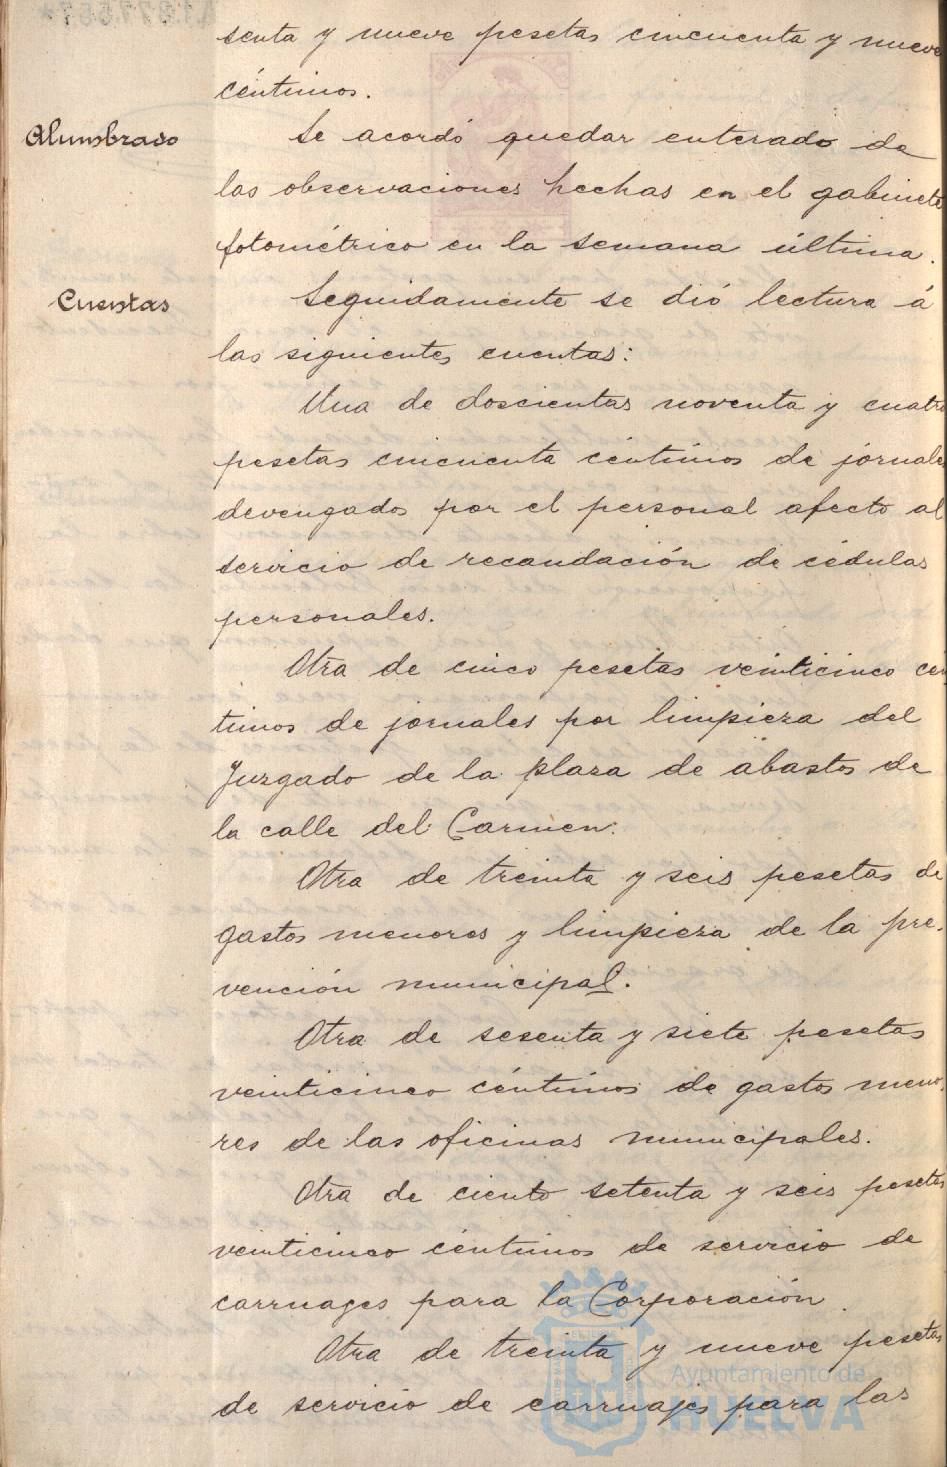 senta y nueve pesetas cincuenta y nueve
céntimos.
Alumbrado
Se acordó quedar enterado de
las observaciones hechas en el gabinete
fotométrico en la semana última.
Cuentas
Seguidamente se dió lectura á
las siguientes cuentas:
Una de doscientas noventa y cuatro
pesetas cincuenta céntimos de jornales
devengados por el personal afecto al
servicio de recaudación de cédulas
personales.
Otra de cinco pesetas veinticinco cén
timos de jornales por limpieza del
Juzgado de la plaza de abastos de
la calle del Carmen.
Otra de treinta y seis pesetas de
gastos menores y limpieza de la pre-
vención municipal.
Otra de sesenta y siete pesetas
veinticinco céntimos de gastos meno-
res de las oficinas municipales.
Otra de ciento setenta y seis pesetas
veinticinco céntimos de servicio de
carruages para la Corporación.
Otra de treinta y nueve pesetas
de servicio de carruajes para las
Ayuntamiento de
HUELVA